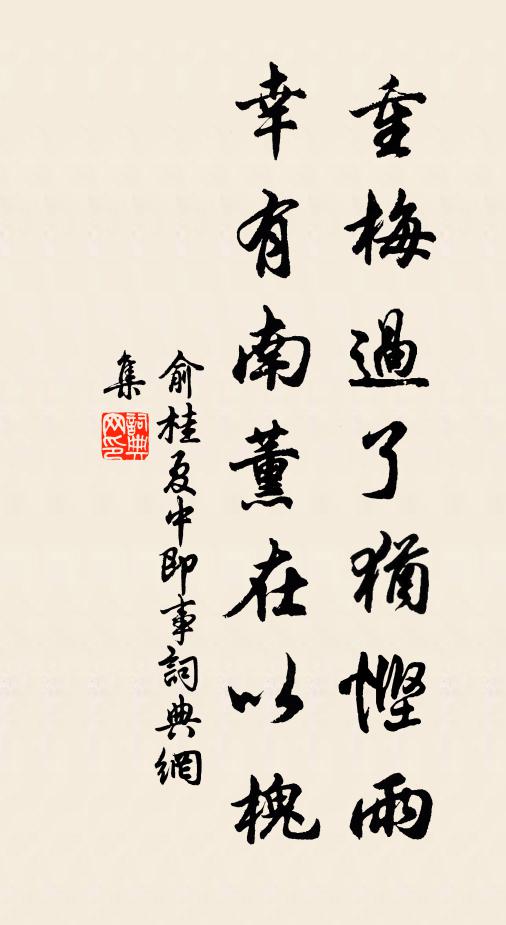 重梅過了猶慳雨
幸有南薰在以槐
俞桂夏中即事詞典網
集
詞典
网印